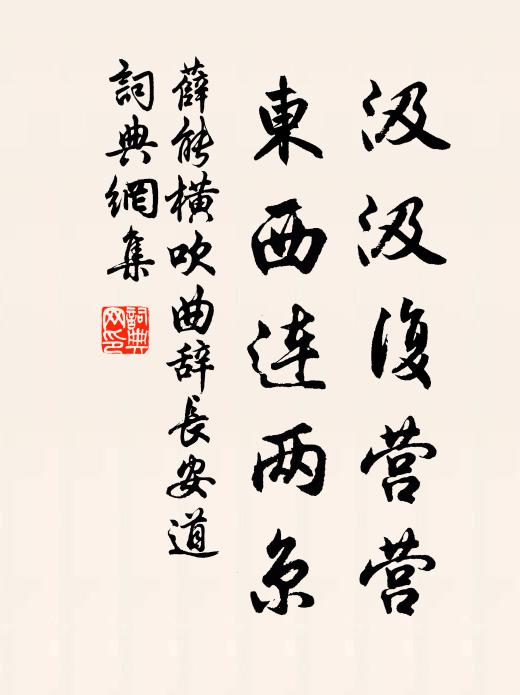 汲汲復营营
東西連两京
薛能横吹曲辞長安道
詞典網集
詞典网印